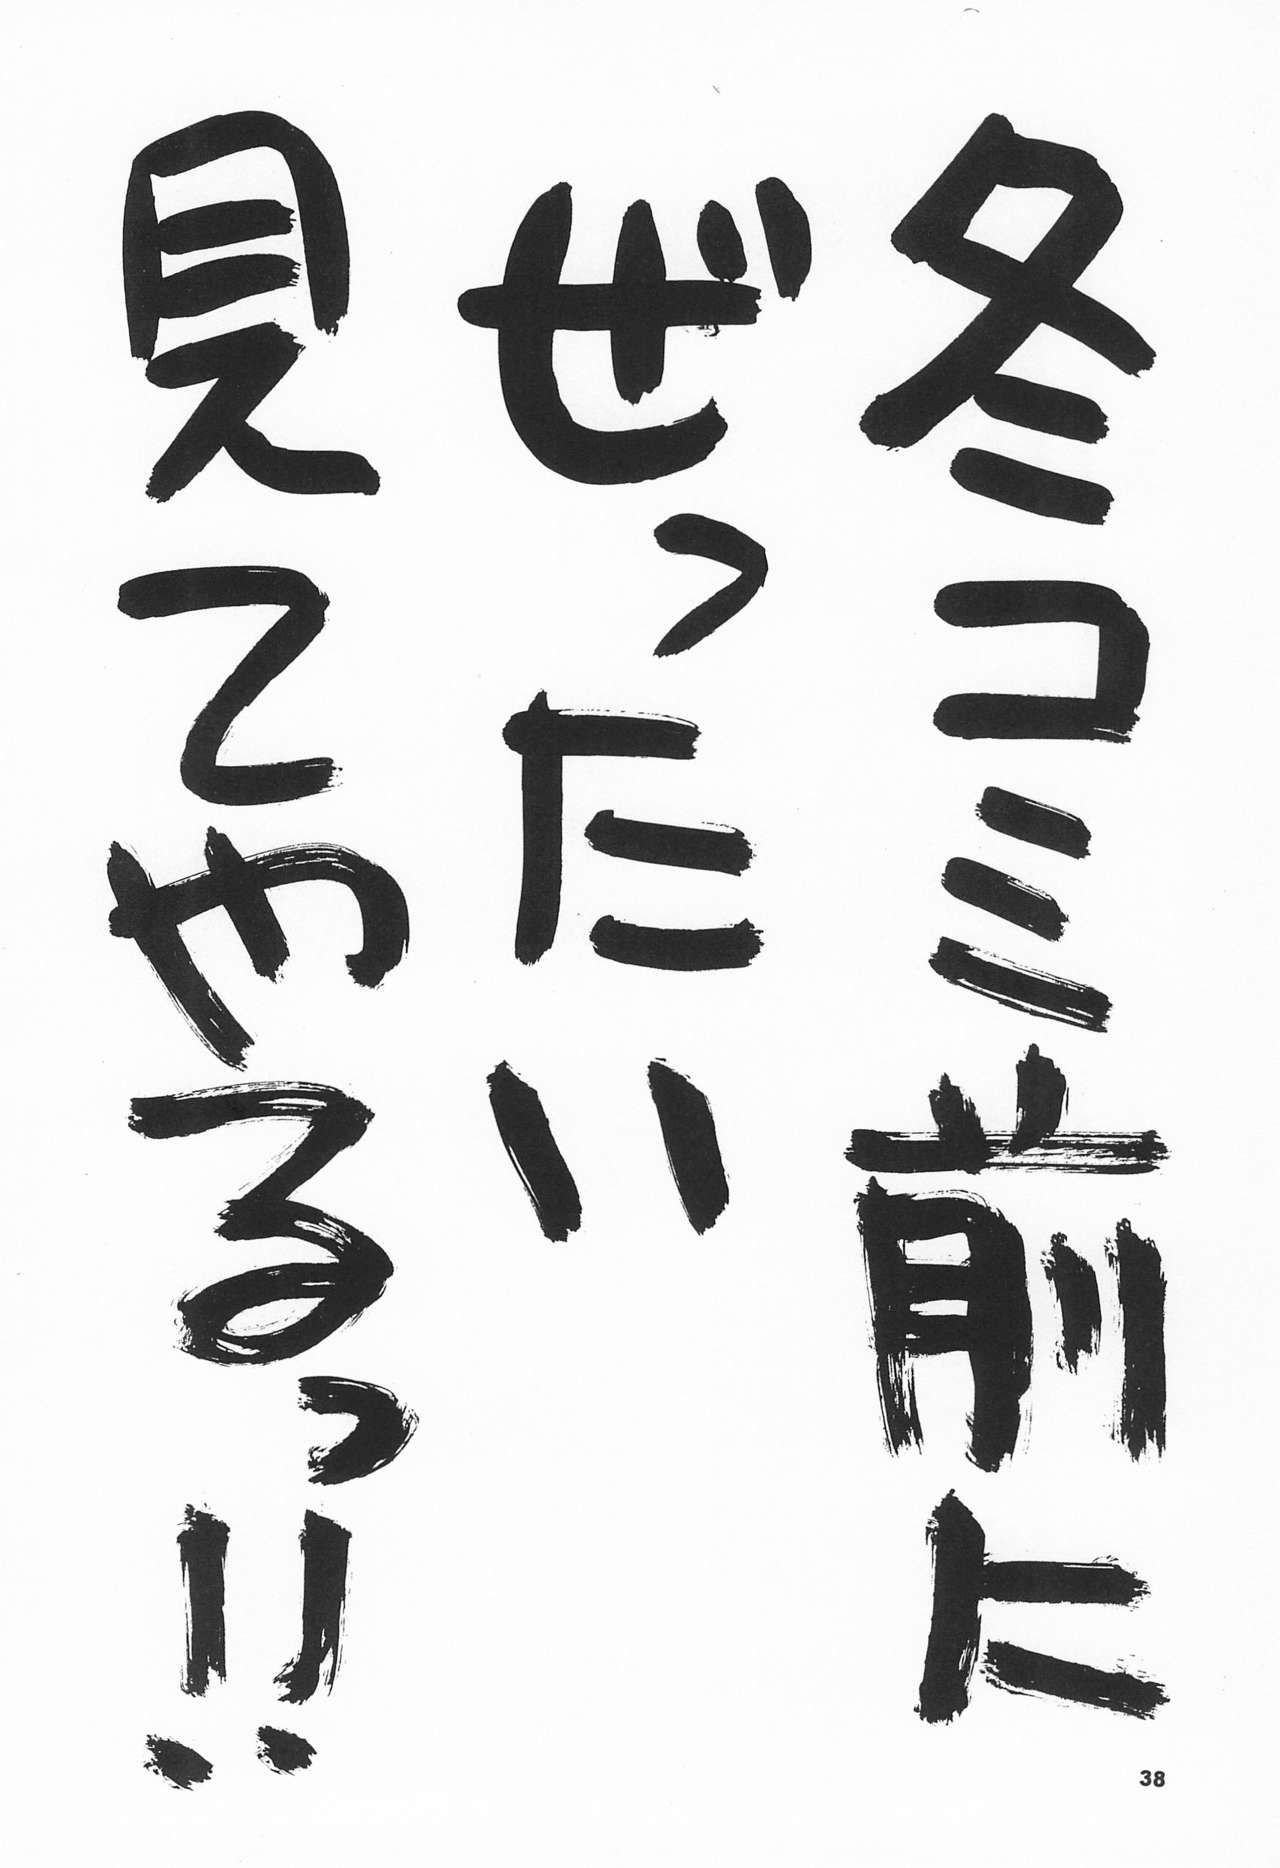 冬コミ前に
ぜったい
見てやるっ!!
38